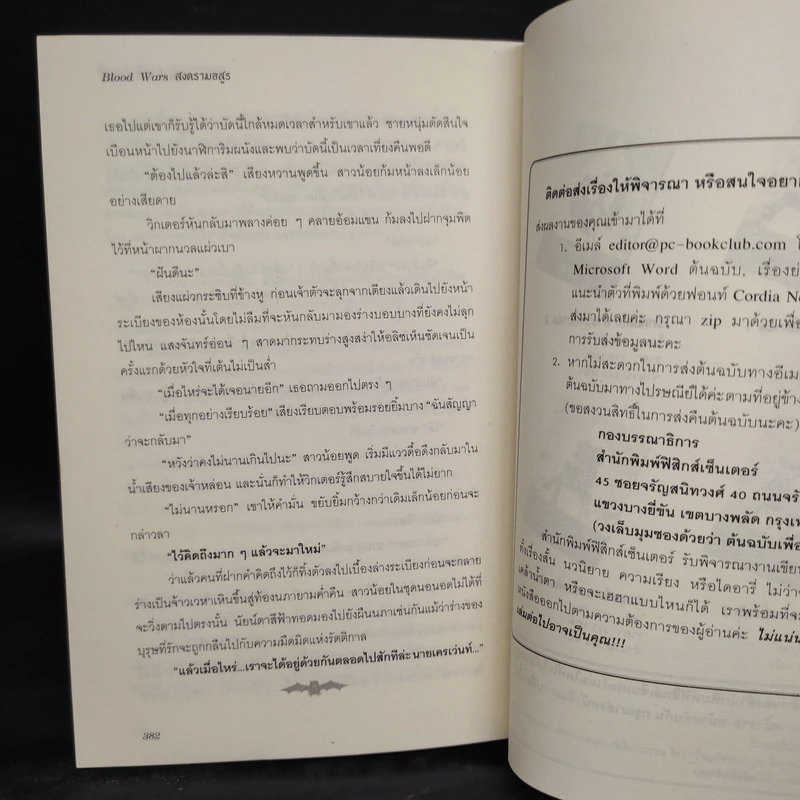 Blood Wars สงครามอสูร
เธอไปแต่เขาก็รับรู้ได้ว่าบัดนี้ใกล้หมดเวลาสำหรับเขาแล้ว ชายหนุ่มตัดสินใจ
เบือนหน้าไปยังนาฬิการิมผนังและพบว่าบัดนี้เป็นเวลาเที่ยงคืนพอดี
“ต้องไปแล้วล่ะสิ” เสียงหวานพูดขึ้น สาวน้อยก้มหน้าลงเล็กน้อย
อย่างเสียดาย
วิกเตอร์หันกลับมาพลางค่อย ๆ คลายอ้อมแขน ก้มลงไปฝากจุมพิต
ไว้ที่หน้าผากนวลแผ่วเบา
“ฝันดีนะ”
เสียงแผ่วกระซิบที่ข้างหู ก่อนเจ้าตัวจะลุกจากเตียงแล้วเดินไปยังหน้า
ระเบียงของห้องนั้นโดยไม่ลืมที่จะหันกลับมามองร่างบอบบางที่ยังคงไม่ลุก
ไปไหน แสงจันทร์อ่อน ๆ สาดมากระทบร่างสูงสง่าให้อลิซเห็นชัดเจนเป็น
ครั้งแรกด้วยหัวใจที่เต้นไม่เป็นส่ำ
“เมื่อไหร่จะได้เจอนายอีก” เธอถามออกไปตรง ๆ
“เมื่อทุกอย่างเรียบร้อย” เสียงเรียบตอบพร้อมรอยยิ้มบาง “ฉันสัญญา
ว่าจะกลับมา”
“หวังว่าคงไม่นานเกินไปนะ” สาวน้อยพูด เริ่มมีแววดื้อดึงกลับมาใน
น้ำเสียงของเจ้าหล่อน และนั่นก็ทำให้วิกเตอร์รู้สึกสบายใจขึ้นได้ไม่ยาก
“ไม่นานหรอก” เขาให้คำมั่น ขยับยิ้มกว้างกว่าเดิมเล็กน้อยก่อนจะ
กล่าวลา
“ไว้คิดถึงมาก ๆ แล้วจะมาใหม่”
ว่าแล้วคนที่ฝากคำคิดถึงไว้ก็ทิ้งตัวลงไปเบื้องล่างระเบียงก่อนจะกลาย
ร่างเป็นจ้าวเวหาเหินขึ้นสู่ท้องนภายามค่ำคืน สาวน้อยในชุดนอนอดไม่ได้ที่
จะวิ่งตามไปตรงนั้น นัยน์ตาสีฟ้าทอดมองไปยังผืนนภาเช่นกันแม้ว่าร่างของ
บุรุษที่รักจะถูกกลืนไปกับความมืดมิดแห่งรัตติกาล
“แล้วเมื่อไหร่...เราจะได้อยู่ด้วยกันตลอดไปสักทีล่ะ นายเครเว่นท์...”
382
ติดต่อส่งเรื่องให้พิจารณา หรือสนใจอยาก
ส่งผลงานของคุณเข้ามาได้ที่
1. อีเมล์ editor@pc-bookclub.com
Microsoft Word ต้นฉบับ, เรื่องย่
แนะนำตัวที่พิมพ์ด้วยฟอนท์ Cordia Ne
ส่งมาได้เลยค่ะ กรุณา zip มาด้วยเพื่อ
การรับส่งข้อมูลนะคะ
2. หากไม่สะดวกในการส่งต้นฉบับทางอีเม
ต้นฉบับมาทางไปรษณีย์ได้ค่ะตามที่อยู่ข้าง
(ขอสงวนสิทธิ์ในการส่งคืนต้นฉบับนะคะ)
กองบรรณาธิการ
สำนักพิมพ์ฟิสิกส์เซ็นเตอร์
45 ซอยจรัญสนิทวงศ์ 40 ถนนจรั
แขวงบางยี่ขัน เขตบางพลัด กรุงเท
(วงเล็บมุมซองด้วยว่า ต้นฉบับเพื่อ
สำนักพิมพ์ฟิสิกส์เซ็นเตอร์ รับพิจารณางานเขียน
ทั้งเรื่องสั้น นวนิยาย ความเรียง หรือไดอารี่ ไม่ว่า
เคล้าน้ำตา หรือจะเฮฮาแบบไหนก็ได้ เราพร้อมที่จะ
หนังสือออกไปตามความต้องการของผู้อ่านค่ะ ไม่แน่น
เล่มต่อไปอาจเป็นคุณ!!!